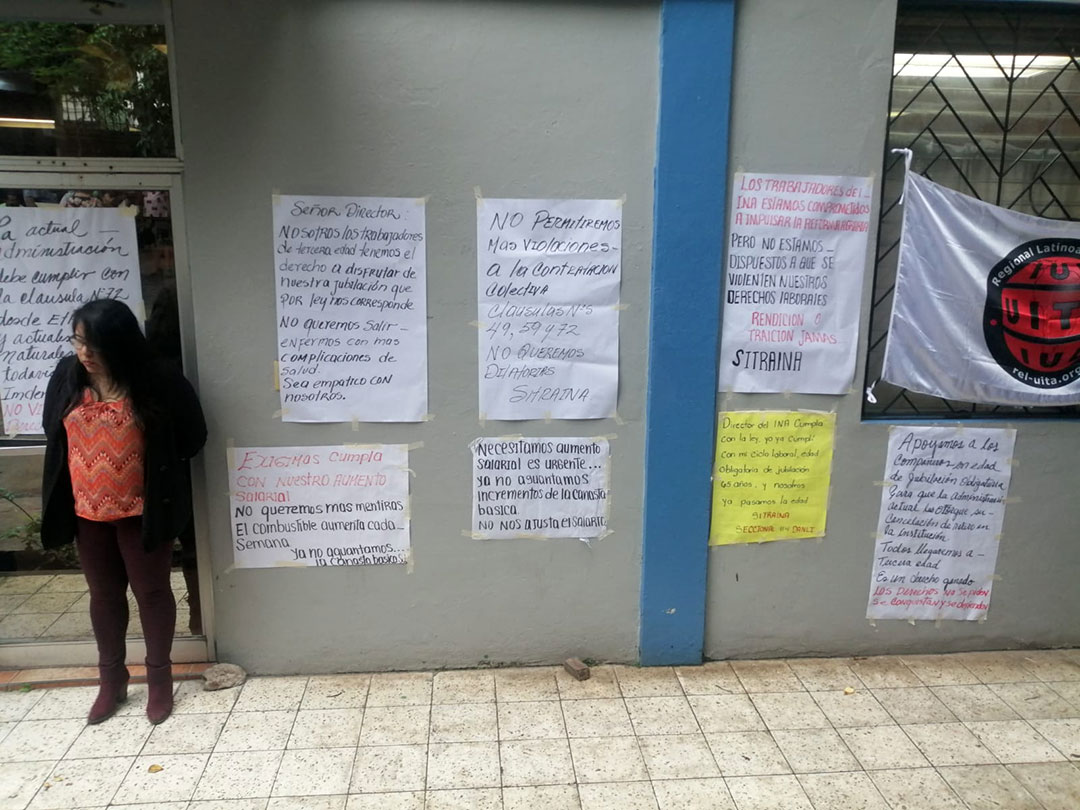 La actual
administración
debe cumplir con
la clausula Nº 72
desde
y actuales
naturales
todavia
NO
SEÑOR DIRECTOR:
NOSOTROS LOS TRABAJADORES
DE TERCERA EDAD TENEMOS EL
DERECHO A DISFRUTAR DE
NUESTRA JUBILACIÓN QUE
POR LEY NOS CORRESPONDE
NO QUEREMOS SALIR-
ENFERMOS CON MAS
COMPLICACIONES DE
SALUD.
SEA EMPATICO CON
NOSOTROS.
NO PERMITIREMOS
MAS VIOLACIONES-
A LA CONTRATACION
COLECTIVA
CLAUSULAS Nº S
49, 59 y 72
NO QUEREMOS
DILATORIAS
SITRAINA
EXIGIMOS CUMPLA
CON NUESTRO AUMENTO
SALARIAL
NO QUEREMOS MAS MENTIRAS
EL COMBUSTIBLE AUMENTA CADA-
SEMANA
ya no aguantamos...
la canasta basica
NECESITAMOS AUMENTO
SALARIAL ES URGENTE...
ya no aguantamos
INCREMENTOS DE LA CANASTA
BASICA
NO NOS AJUSTA EL SALARIO.
LOS TRABAJADORES DEL-
INA ESTAMOS COMPROMETIDOS
A IMPULSAR LA REFORMA AGRARIA
PERO NO ESTAMOS-
DISPUESTOS A QUE SE
VIOLENTEN NUESTROS
DERECHOS LABORALES
RENDICIÓN O
TRAICION JAMAS
SITRAINA
Director del INA Cumpla
con la ley, yo ya cumpli
con mi ciclo laboral, edad
obligatoria de jubilación
65 años. y nosotros
ya pasamos la edad
SITRAINA
SECCIONAL DANLI
Apoyamos a los
Compañeros en edad
de Jubilación Obligatoria
Para que la administración
actual les otorgue su-
Cancelación de retiro en
la institución
Todos llegaremos a-
Tercera edad
Es un derecho ganado
LOS DERECHOS NO SE PIDEN
SE CONQUISTAN Y SE defienden
Regional Latinoa
UITA
rel-uita.org